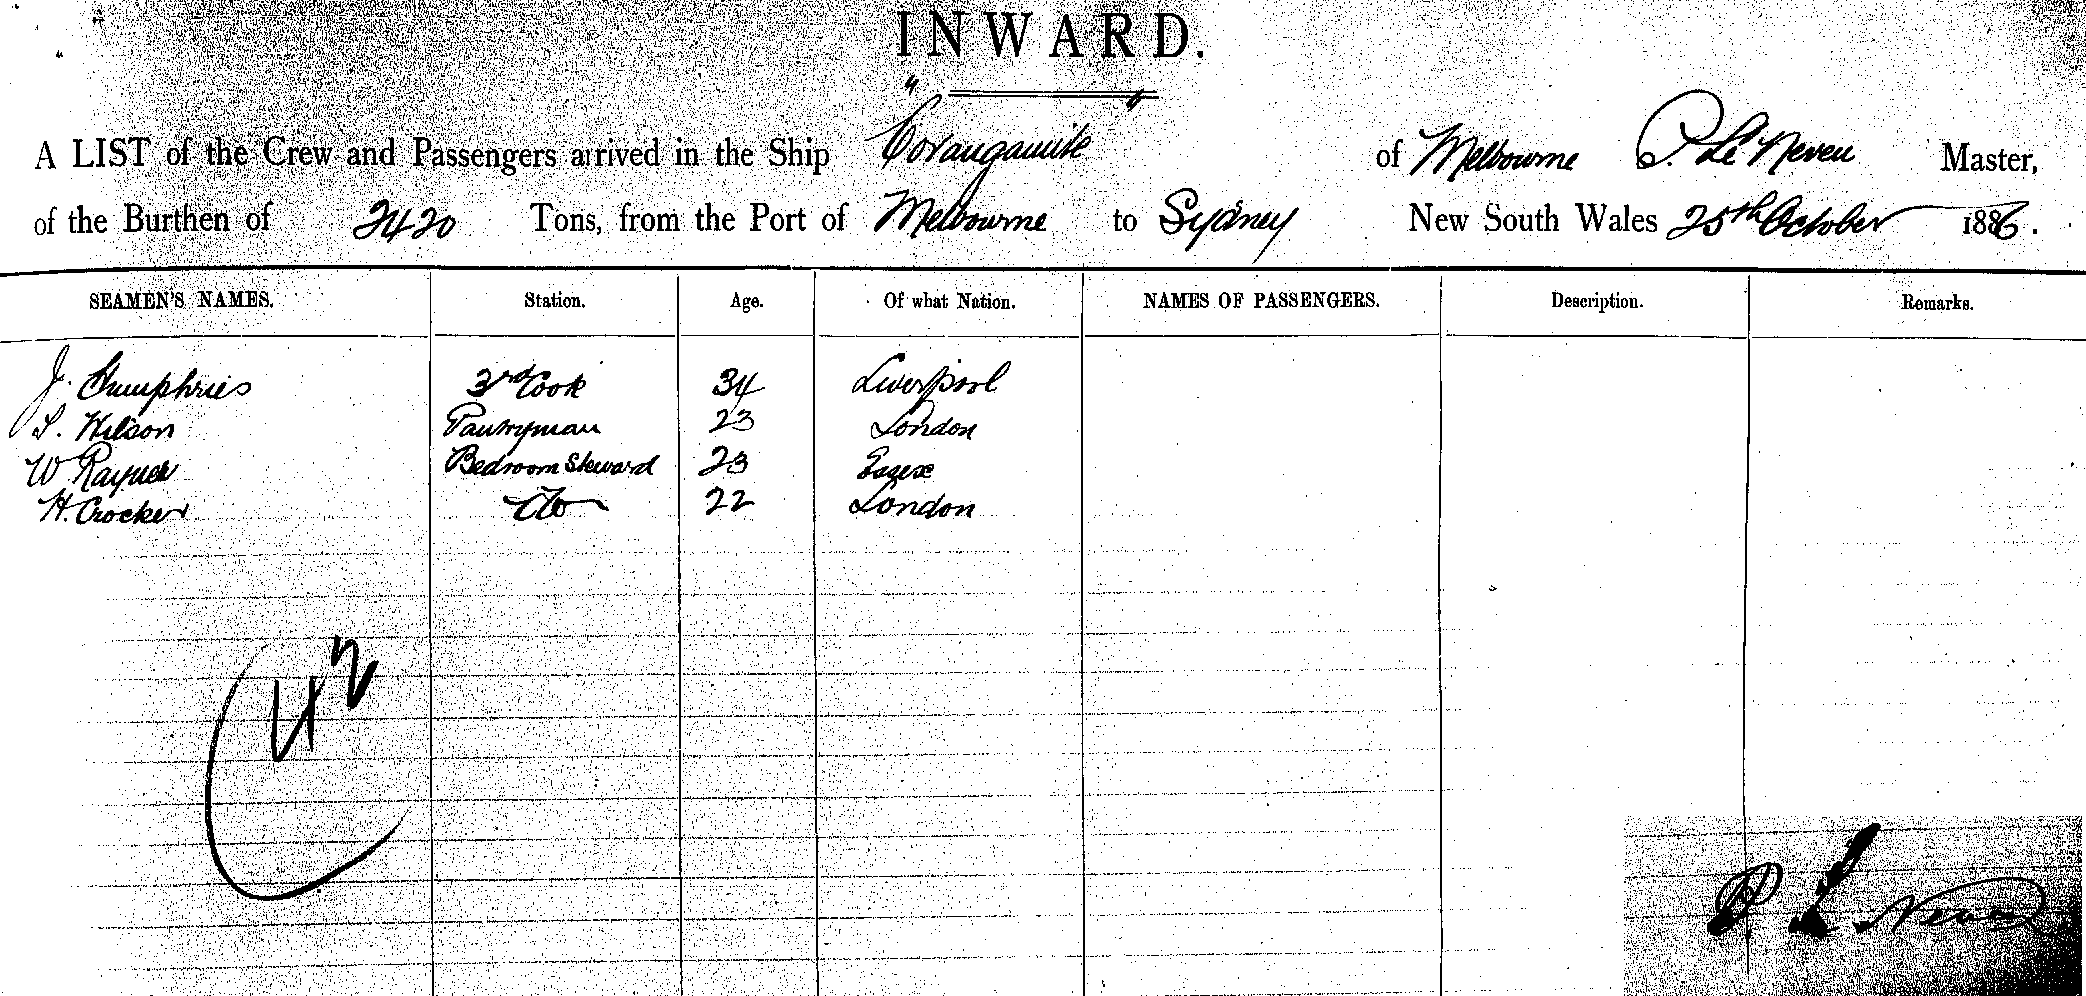 INWARD.
A LIST of the Crew and Passengers arrived in the Ship "Corangamite" of Melbourne P. Le Neveu Master,
of the Burthen of 2420 Tons, from the Port of Melbourne to Sydney New South Wales 25th October 1886.
SEAMEN'S NAMES. Station. Age. Of what Nation. NAMES OF PASSENGERS. Description. Remarks.
J. Humphries 3rd Cook 34 Liverpool
S. Wilson Pantryman 23 London
W Rayner Bedroom Steward 23 Essex
H. Crocker do 22 London
42
P. Le Neveu